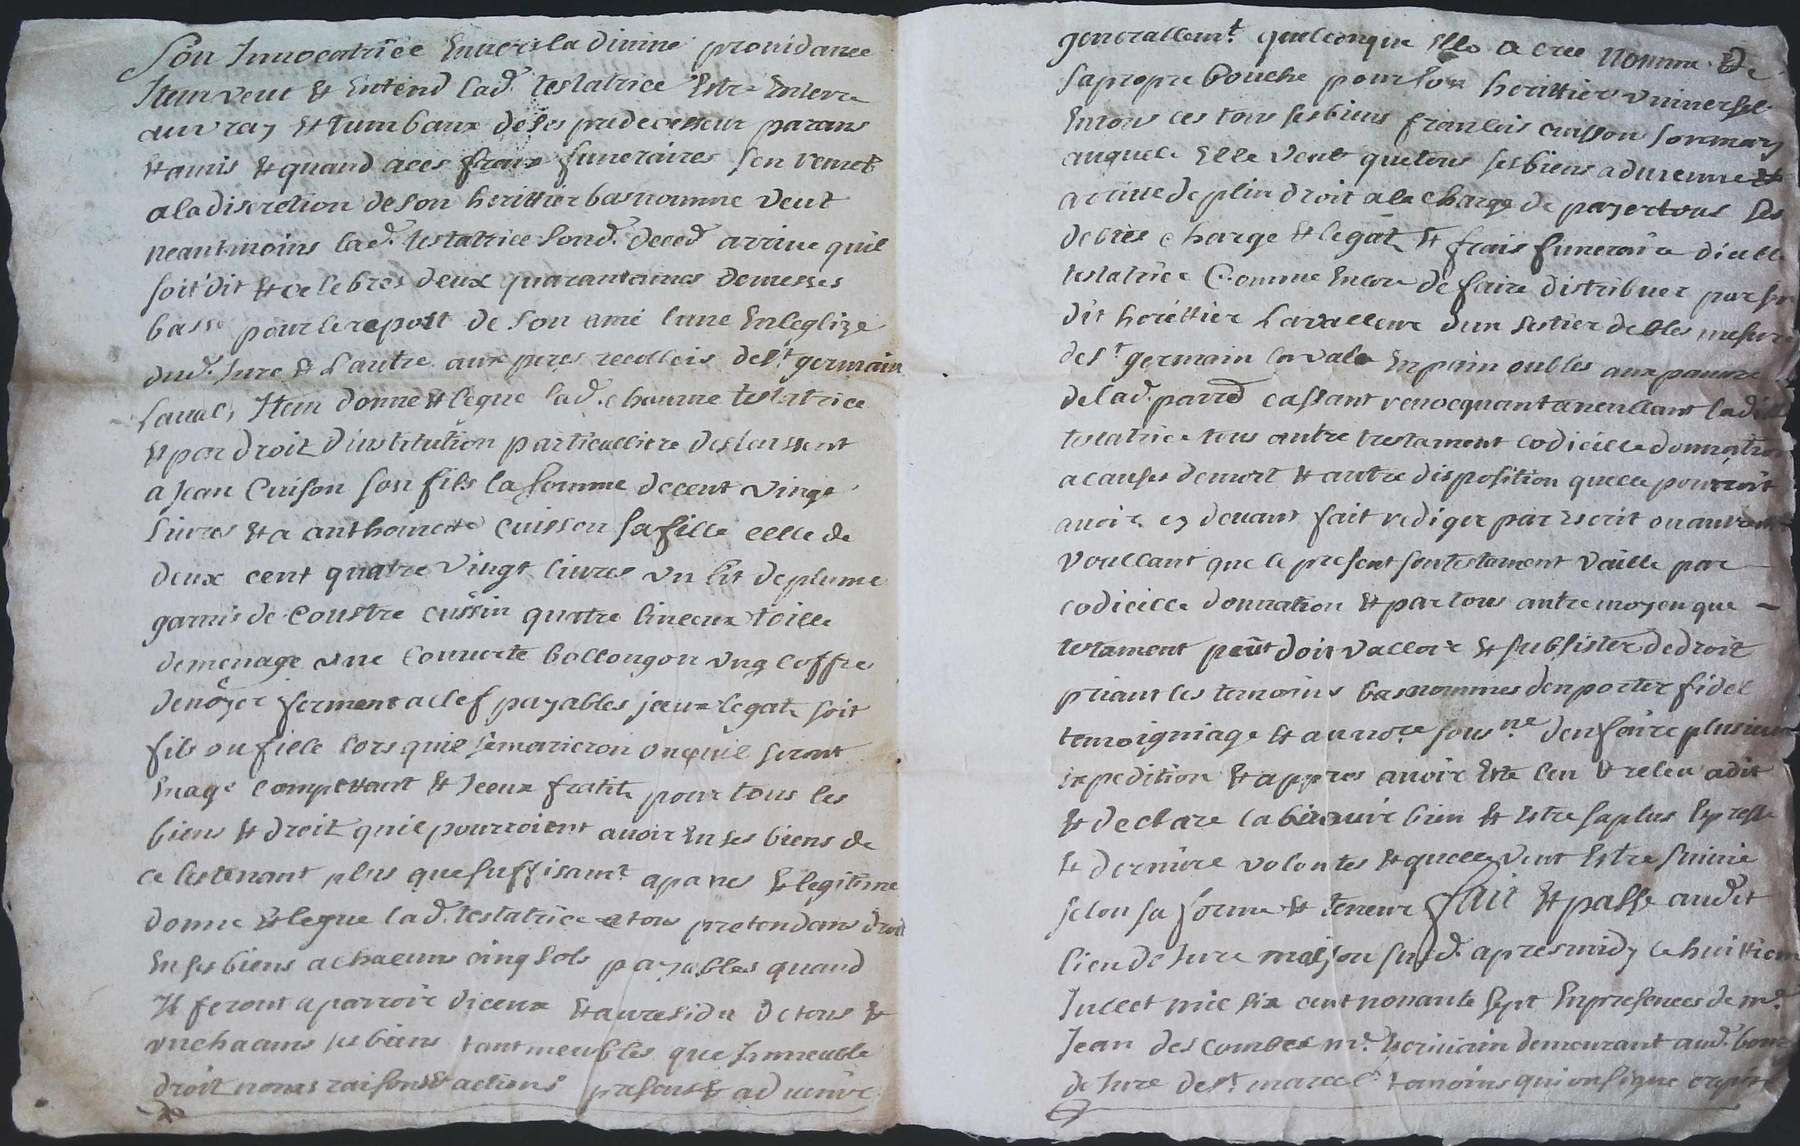 Son Innocatrice Envers la divine providance
Item veut Et Entend lad. testatrice Estre Enterre
au vray Et tumbaux de ses predecesseur parans
Et amis Et quand a ces fraix funeraires sen remet
a la discretion de son herittier bas nomme veut
neantmoins lad. testatrice sond. deced arrive quil
soit dit Et celebres deux quarantaines de messes
basse pour le repost de son ame lune En leglize
dud. Jure Et Lautre aux peres recollois de St. germain
Laual, Item donne Et legue lad. choume testatrice
Et par droit dinstitution particulliere delaissent
a Jean Cuison son fils la somme de cent vingt
Livres Et a anthoinette cuisson sa fille celle de
deux cent quatre vingt livres un lit de plume
garnis de Coustre cussin quatre linceux toille
de menage une Couverte bollongon ung coffre
de noyer ferment a clef payables iceux legats soit
fils ou fille lors quil se marieron ou quil seront
En age competant Et Iceux fratits pour tous les
biens Et droit quil pourroient avoir En ses biens de
ce les tenant plus que suffisamt. apanes Et legitime
donne Et legue lad. testatrice a tous pretendans droit
En ses biens a chacuns cinq sols payables quand
Il feront aparroir diceux Et au residu de tous Et
un chacuns ses biens tant meubles que Immeuble
droit noms raisons Et actions presens Et advenir
generallemt. quelconque Elle a cree nomme de
sa propre bouche pour son herittier universel
En tous ces tous ses biens francois cuisson son mary
auquel Elle veut que tous ses biens advienne Et
arrive de plin droit a la charge de payer tous ses
debtes charge Et legat Et frais funeraire dicelle
testatrice Comme Encore de faire distribuer par son
dit herittier La valleur dun sestier de bles mesure
de St. germain laval En pain ou bles aux pauvre
de lad. parr. cassant revocquant aneullant ladite
testatrice tous autre testament codicille donnation
a causes de mort Et autre disposition quelle pourroit
avoir cy devant fait rediger par Escrit ou autrement
voullant que le present son testament vaille par
codicille donnation Et par tous autre moyen que
testament peut doit valloir Et subsister de droit
priant les temoins bas nommes den porter fidel
temoigniage Et au nore. sousne. den faire plusieurs
Expedition Et appres avoir Este leu Et releu a dit
Et declare la bien ouir bien Et Estre sa plus Expresse
Et derniere volontes Et quelle veut Estre suivie
selon sa forme Et teneur fait Et passe audit
lieu de Jure maison susd. apres midy le huittiem
Jullet mil six cent nonante sept En presences de me.
Jean descombes me. Escrivain demeurant aud. bourg
de Jure de St. marcel temoins qui ont signe